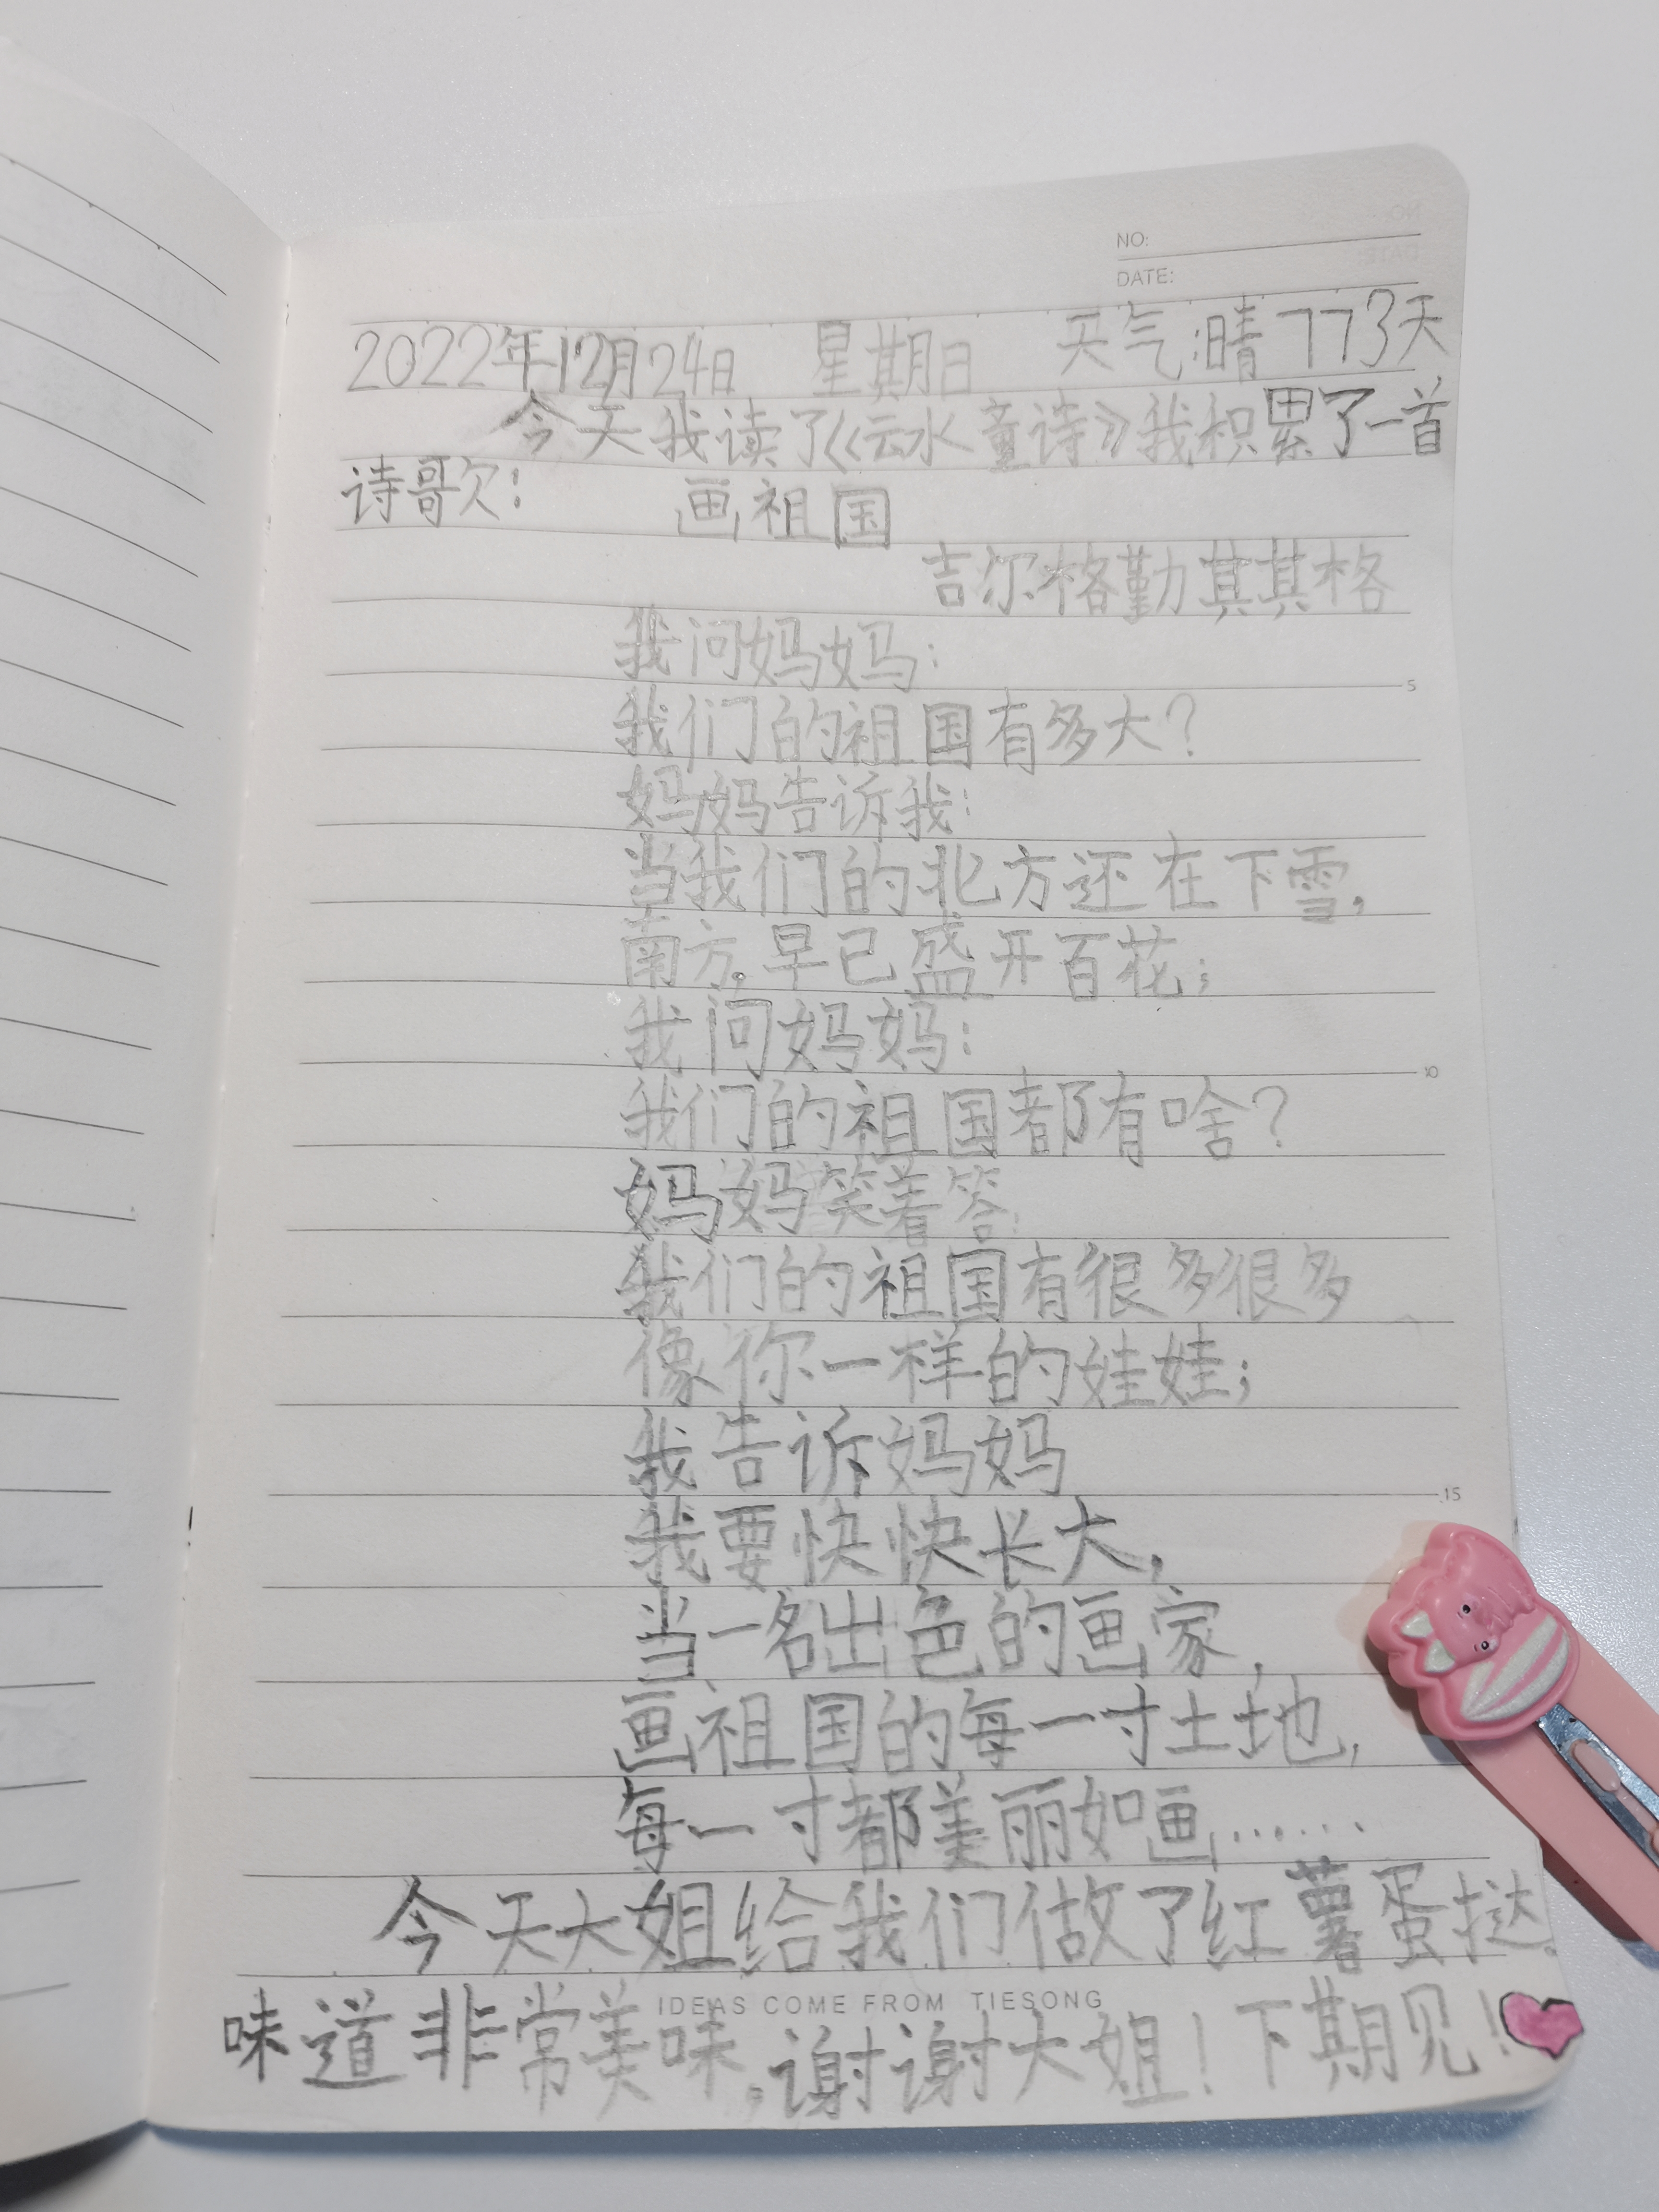 NO:
DATE:
2022年12月24日 星期日 天气:晴 773天
今天我读了《云水童诗》我积累了一首
诗歌: 画祖国
吉尔格勤其其格
我问妈妈:
我们的祖国有多大?
妈妈告诉我:
当我们的北方还在下雪,
南方,早已盛开百花;
我问妈妈:
我们的祖国都有啥?
妈妈笑着答:
我们的祖国有很多很多
像你一样的娃娃;
我告诉妈妈
我要快快长大,
当一名出色的画家,
画祖国的每一寸土地,
每一寸都美丽如画……
今天大姐给我们做了红薯蛋挞。
IDEAS COME FROM TIESONG
味道非常美味,谢谢大姐!下期见!
5
10
15